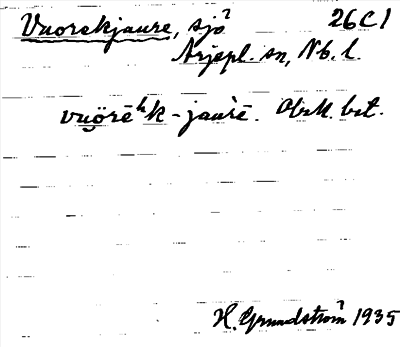 Vuorekjaure, sjö 26 C 1
Arjepl. sn, Nb. l.
vuo̯rēʰk-jaurē. Obest. bet.
H. Grundström 1935